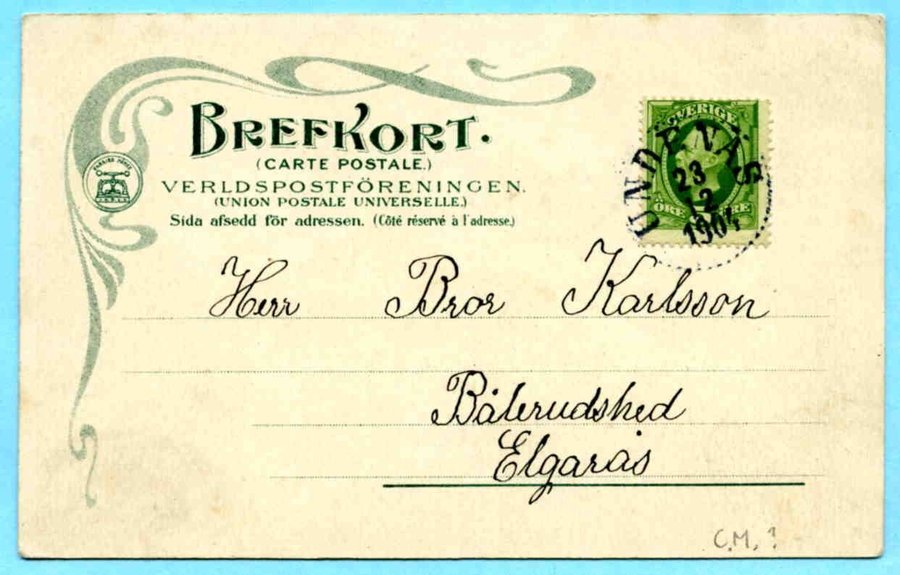 BREFKORT.
(CARTE POSTALE.)
VERLDSPOSTFÖRENINGEN.
(UNION POSTALE UNIVERSELLE.)
Sida afsedd för adressen. (Côté réservé à l'adresse.)
SVERIGE
ÖRE ÖRE
UNDENÄS
23
12
1904
Herr Bror Karlsson
Bålerudshed
Elgarås
C.M. ?